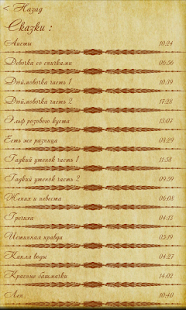 < Назад
Сказки :
Аисты 10:24
Девочка со спичками 06:56
Дюймовочка часть 1 10:39
Дюймовочка часть 2 17:28
Эльф розового куста 13:04
Есть же разница 08:29
Гадкий утенок часть 1 11:58
Гадкий утенок часть 2
Жених и невеста 05:08
Гречиха 04:17
Истинная правда 05:19
Капля воды 04:27
Красные башмачки 10:33
Лен 10:40